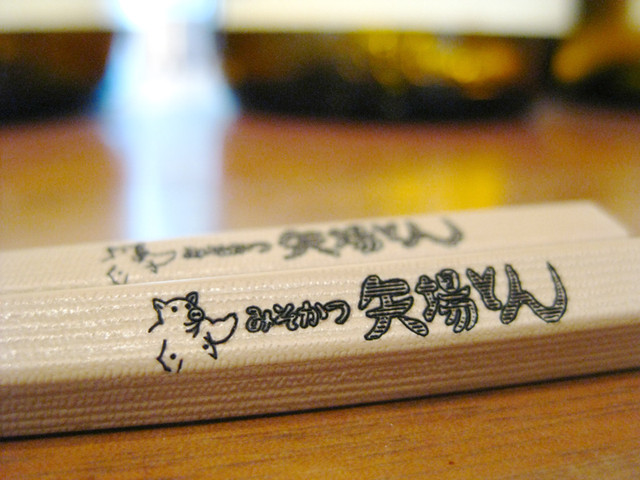 みそかつ 矢場とん
みそかつ 矢場とん